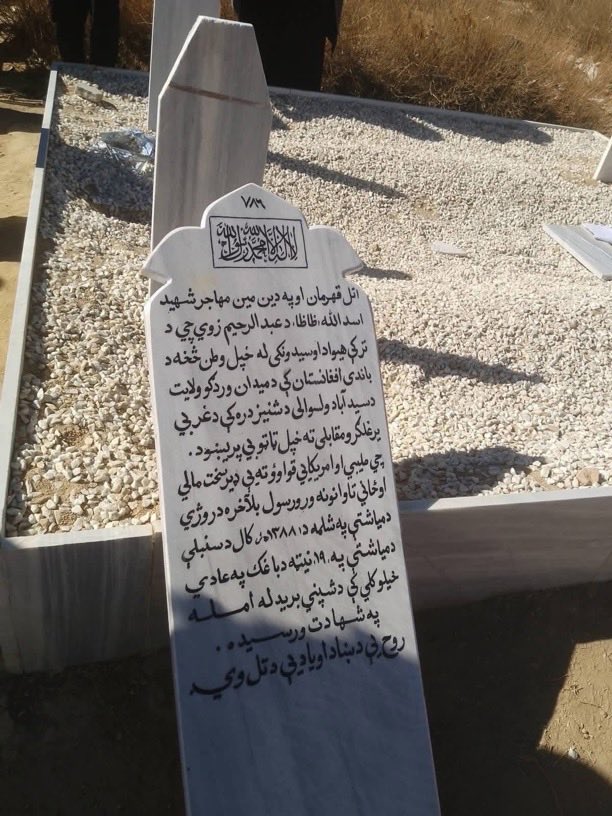 ۷۸۶
لا اله الا الله محمد رسول الله
اتل قهرمان او په دين مين مهاجر شهيد
اسد الله ،ظاظا، د عبد الرحيم زوي چي د
ترکي هيواد اوسيدونکی له خپل وطن څخه د
باندي افغانستان کي د ميدان وردګو ولايت
د سيد آباد ولسوالی د شنيز دره کي د غربي
يرغلګرو مقابلی ته خپل تاتوبي پريښود.
چي صليبي او امريکايي قواوو ته يې ډير سخت مالي
او ځاني تاوانونه ور ورسول بلآخره د روژي
د مياشتي په شلمه د ۱۳۸۸ه‍ ش کال د سنبلې
د مياشتې په ،۱۹، نيټه د باغک په عادي
خيلو کلي کي د شپني بريد له امله
په شهادت ورسيده.
روح يې د ښاد او ياد يې د تل وي.